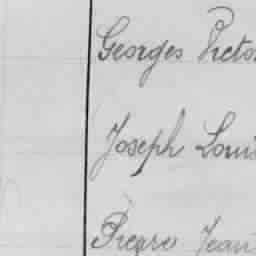 Georges Victo
Joseph Louis
Pierre Jean